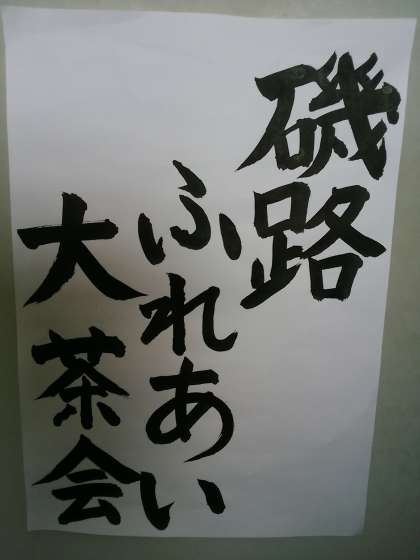 磯路
ふれあい
大茶会